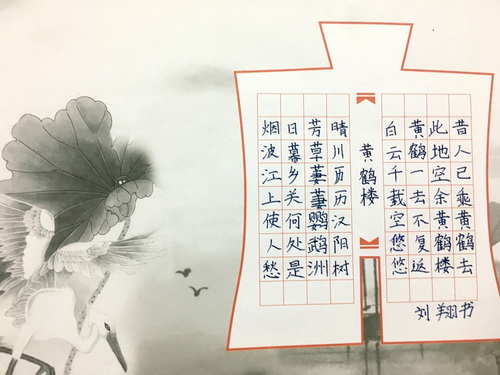 昔人已乘黄鹤去
此地空余黄鹤楼
黄鹤一去不复返
白云千载空悠悠
黄鹤楼
晴川历汉阳树
芳草萋萋鹦鹉洲
日暮乡关何处是
烟波江上使人愁
刘翔书